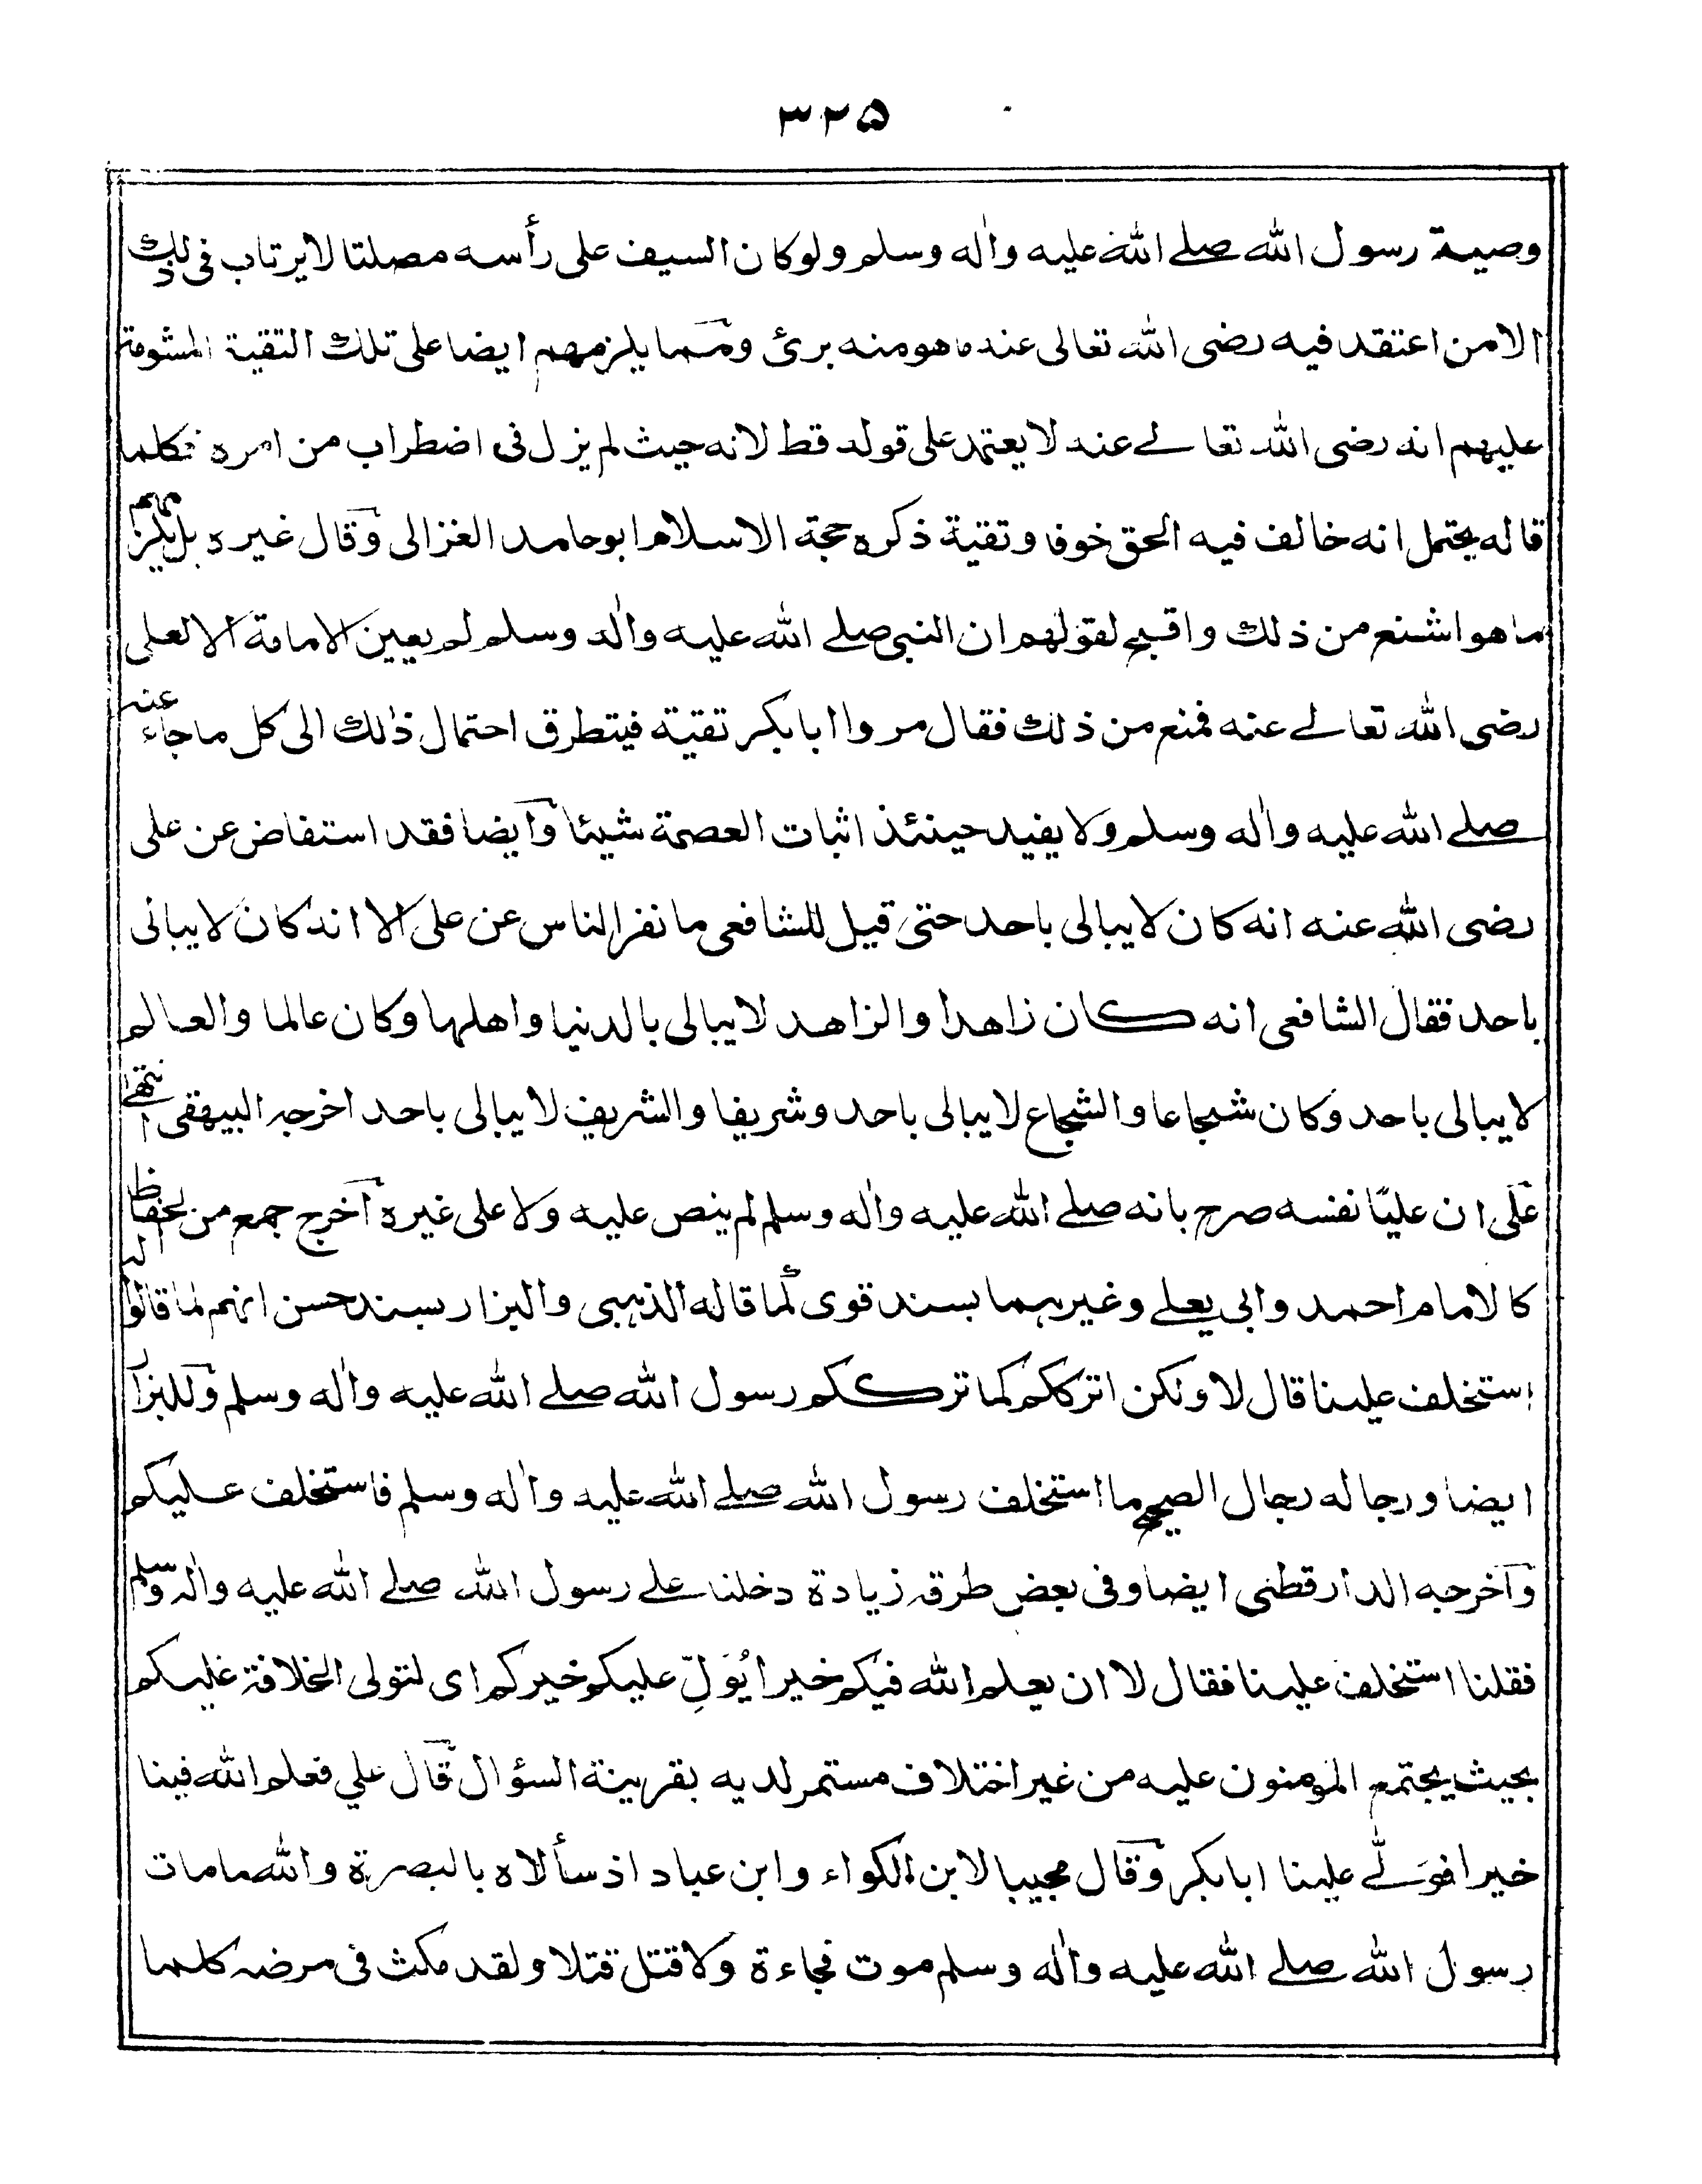 ٣٢٥
وصية رسول الله صلے الله عليه واٰله وسلم ولو كان السيف على رأسه مصلتا لا يرتاب فى ذلك
الا من اعتقد فيه رضى الله تعالى عنه ما هو منه برئ ومما يلزمهم ايضا على تلك التقية المشومة
عليهم انه رضى الله تعالے عنه لا يعتمد على قوله قط لانه حيث لم يزل فى اضطراب من امره فكلما
قاله يحتمل انه خالف فيه الحق خوفا وتقية ذكره حجة الاسلام ابو حامد الغزالى وقال غيره بل يلزمهم
ما هو اشنع من ذلك واقبح لقولهم ان النبى صلے الله عليه واٰله وسلم لم يعين الامامة الا لعلى
رضى الله تعالے عنه فمنع من ذلك فقال مروا ابا بكر تقية فيتطرق احتمال ذٰلك الى كل ما جاء عنه
صلے الله عليه واٰله وسلم ولا يفيد حينئذ اثبات العصمة شيئا وايضا فقد استفاض عن على
رضى الله عنه انه كان لا يبالى باحد حتى قيل للشافعى ما نفر الناس عن على الا انه كان لا يبالى
باحد فقال الشافعى انه كان زاهدا والزاهد لا يبالى بالدنيا واهلها وكان عالما والعالم
لا يبالى باحد وكان شجاعا والشجاع لا يبالى باحد وشريفا والشريف لا يبالى باحد اخرجه البيهقى انتهے
على ان عليّا نفسه صرح بانه صلے الله عليه واٰله وسلم لم ينص عليه ولا على غيره اخرج جمع من الحفاظ
كالامام احمد وابى يعلے وغيرهما بسند قوى كما قاله الذهبى والبزار بسند حسن انهم لما قالوا له
استخلف علينا قال لا ولكن اترككم كما تركـكم رسول الله صلے الله عليه واٰله وسلم وللبزار
ايضا ورجاله رجال الصحيح ما استخلف رسول الله صلے الله عليه واٰله وسلم فاستخلف عليكم
واخرجه الدارقطنى ايضا وفى بعض طرقه زيادة دخلنا علے رسول الله صلے الله عليه واٰله وسلم
فقلنا استخلف علينا فقال لا ان يعلم الله فيكم خيرا يُوَلِّ عليكم خيركم اى لتولى الخلافة عليكم
بحيث يجتمع المومنون عليه من غير اختلاف مستمر لديه بقرينة السؤال قال علي فعلم الله فينا
خيرا فوَلّے علينا ابا بكر وقال مجيبا لابن الكواء وابن عباد اذ سألاه بالبصرة والله ما مات
رسول الله صلے الله عليه واٰله وسلم موت فجاءة ولا قتل قتلا ولقد مكث فى مرضه كلما